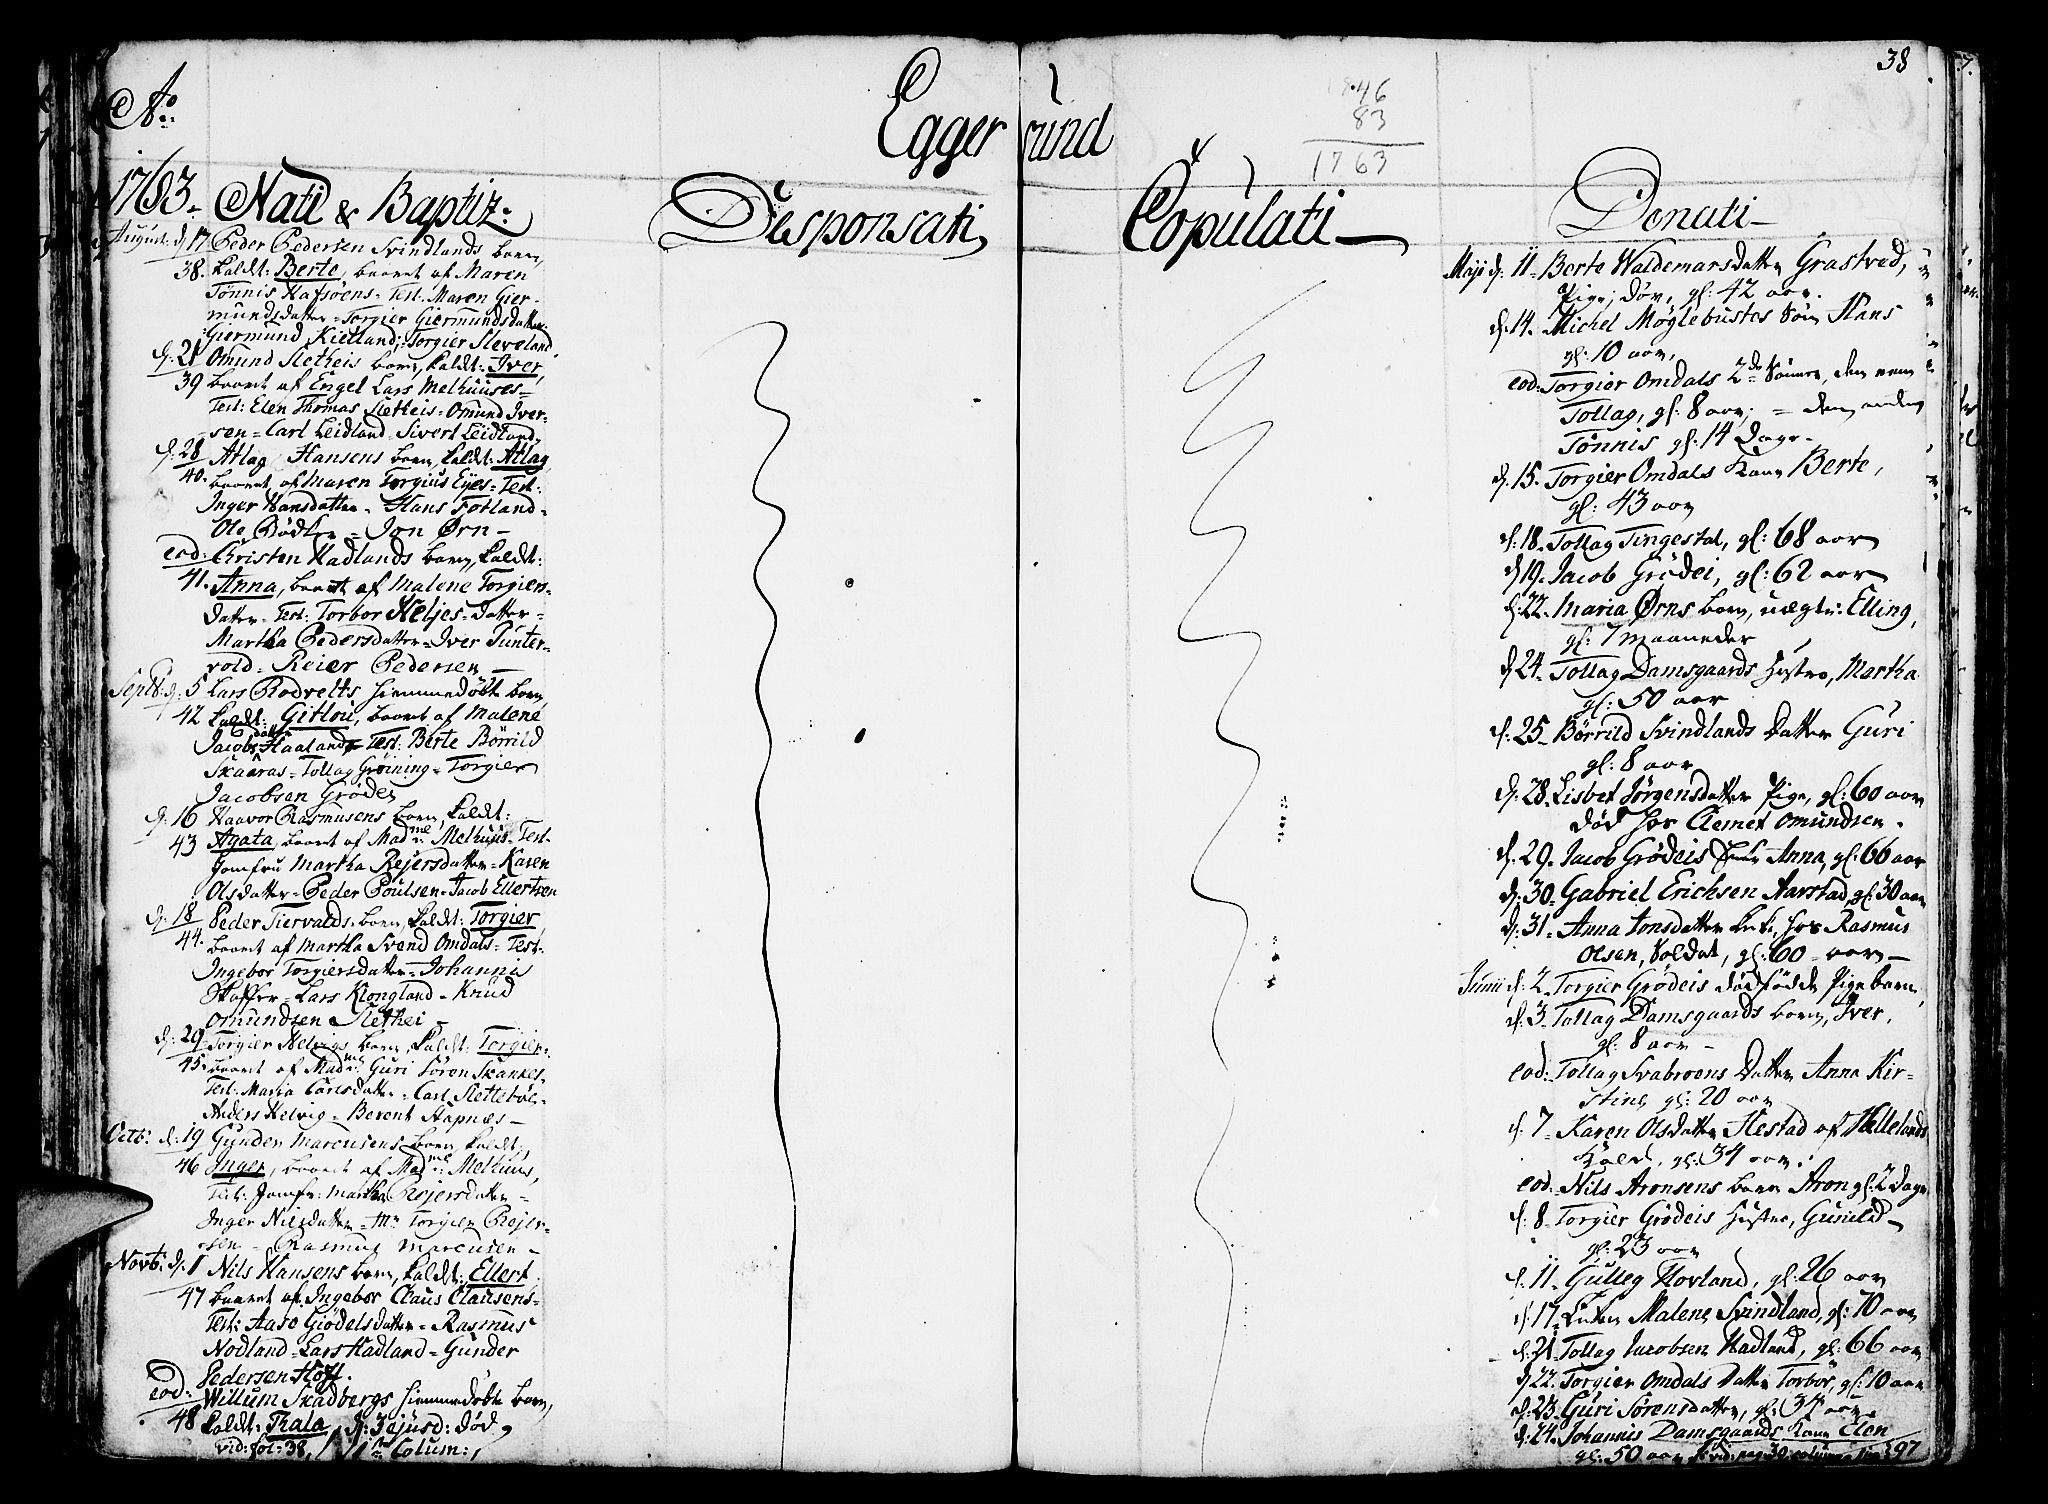 38
Ao.
Egger sund
46
83
1763
1763. Nati & Baptiz:
Desponsati
Copulati
Denati
August: d. 17 Peder Pedersen Svindlands barn,
38. kaldt: Berte, baaret af Maren
Tönnis Hafsöens = Test. Maren Gier-
mundsdatter = Torgier Giermundsdatter
Giermund Kielland, = Torgier Sleveland
d. 21 Omund Sletheis barn, kaldt: Iver,
39 baaret af Engel Lars Melhuuses =
Test: Elen Thomas Sletheis = Omund Iver-
sen = Carl Leidland = Sivert Leidland,
d. 28 Atlag Hansens barn, kaldt: Atlag
40. baaret af Maren Torgius Eyes = Test:
Inger Hansdatter = Hans Fotland =
Ole = Jon Ørn =
eod: Christen Hadlands barn, kaldt:
41. Anna, baaret af Malene Torgiers-
datter = Test: Torbor Neljes = datter =
Martha Pedersdatter = Iver Punter-
vold = Reier Pedersen
Septb: d: 5 Lars Rodvelts hiemmedöbt barn,
42 kaldt: Gitlou, baaret af Malene
datter
Jacobs Haaland = Test: Berte Börrild
Skaaras = Tollag Gröining = Torgier
Jacobsen Gröden
d: 16 Haavor Rasmusens barn, kaldt:
43 Agata, baaret af Mad:me Melhuus = Test:
Jomfru Martha Rejersdatter = Karen
Olsdatter = Peder Poulsen = Jacob Ellertsen
d: 18 Peder Tiervalds barn, kaldt: Torgier
44. baaret af Martha Svend Omdals = Test:
Ingebor Torgiersdatter = Johanna
Staffer = Lars Klongland = Knud
Omundsen Slethei =
d: 29 Torgier Helvigs barn, kaldt: Torgier
45. baaret af Mad:me Guri Sören Skankes =
Test: Maria Carlsdatter = Carl Sletteböe =
Anders Helvig = Berent Stapnæs =
Octb: d: 19 Gunder Marcusens barn kaldt:
46 Inger, baaret af Mad:me Melhuus,
Test: Jomfr: Martha Rejersdatter =
Inger Nilsdatter = Mr Torgier Rejer-
sen = Rasmus Marcusen =
Novb: d: 1 Nils Hansens barn, kaldt: Ellert
47 baaret af Ingebor Claus Clausens =
Test: Aase Giödelsdatter = Rasmus
Nodland = Lars Hadland = Gunder
Pedersen Hoff.
eod: Willum Skadbergs hiemmedöbte barn,
48 kaldt: Thala, d: död
vid: fol: 38, Colum:
Maji d. 11 = Berte Waldemarsdatter Grastved,
Pige, döv, gl: 42 aar.
d. 14. Michel Möglebustes Sön Hans
gl: 10 aar,
eod: Torgier Omdals 2de Sönner, den eene
Tollag, gl: 8 aar, = den anden
Tönnis gl: 14 Dage =
d. 15. Torgier Omdals Kone Berte,
gl: 43 aar
d: 18. Tollag Tingestal, gl: 68 aar
d 19. Jacob Grödei, gl: 62 aar
d: 22. Maria Ørns barn, uægte: Elling,
gl: 7 maaneder
d 24. Tollag Damsgaards Hustro, Martha
gl: 50 aar
d: 25. Börrild Svindlands datter Guri
gl: 8 aar
d: 28. Lisbet Jörgensdatter Pige, gl: 60 aar
död hos Clemet Omundsen.
d. 29. Jacob Grödeis Anna, gl: 66 aar
d: 30. Gabriel Erichsen Aarstad, gl: 30 aar
d: 31. Anna Jonsdatter Enke, hos Rasmus
Olsen, Soldat, gl: 60 = aar =
Junii d: 2. Torgier Grödeis dödfödde Pige barn,
d: 3. Tollag Damsgaards barn, Iver,
gl: 8 aar =
eod: Tollag Svabroens datter Anna Kir-
stine, gl: 20 aar
d. 7 = Karen Olsdatter Hestad af Hellelands
gl: 34 aar.
eod: Nils Aronsens barn Aron gl: 2 dage
d: 8 = Torgier Grödeis Hustro, Gunild
gl: 23 aar
d: 11. Gulleg Hovland, gl: 26 aar
d: 17. Enken Malene Svindland, gl: 70 aar
d: 21. Tollag Jacobsen Hadland, gl: 66 aar
d 22. Torgier Omdals datter Torbör, gl: 10 aar
d: 23. Guri Sörensdatter, gl: 34 aar
d: 24. Johannis Damsgaards Kone Elen
gl: 50 aar vid: pag 39 97